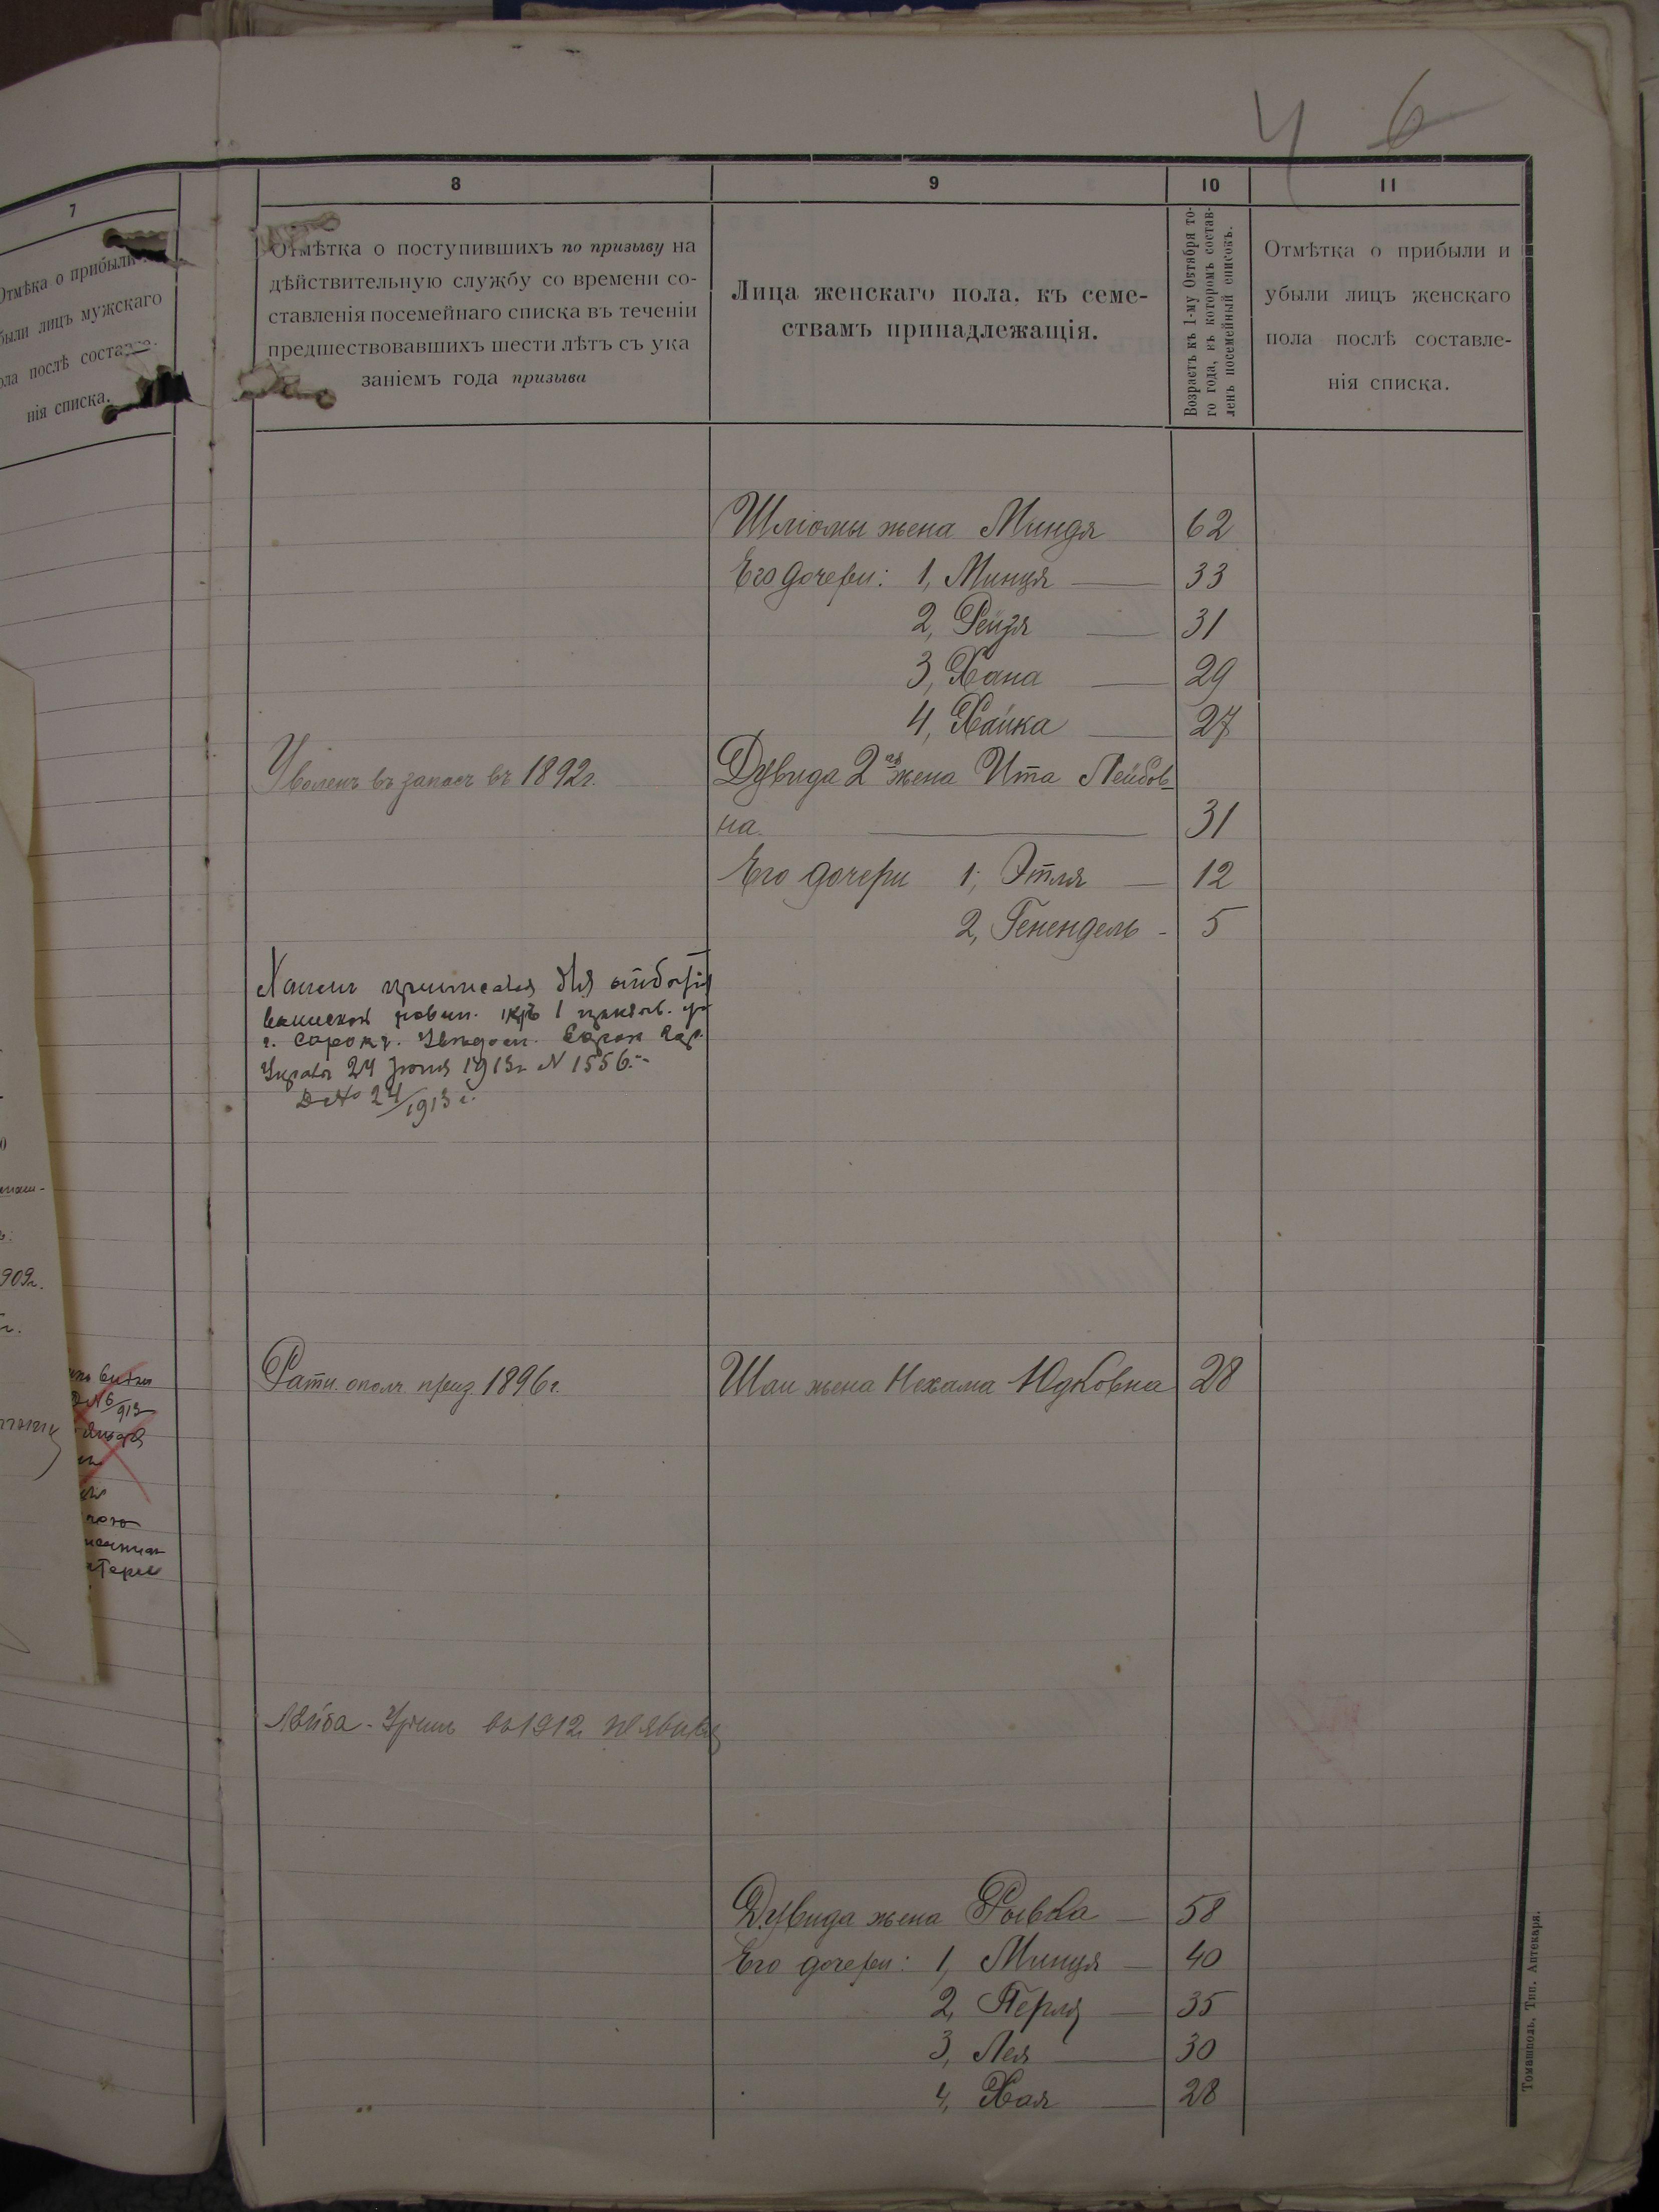 4 6
7
Отмѣтка о прибыли
были лицъ мужскаго
пола послѣ составле-
нія списка.
8
Отмѣтка о поступившихъ по призыву на
дѣйствительную службу со времени со-
ставленія посемейнаго списка въ теченіи
предшествовавшихъ шести лѣтъ съ ука
заніемъ года призыва
9
Лица женскаго пола, къ семе-
ствамъ принадлежащія.
10
Возрастъ къ 1-му Октября то-
го года, къ которомъ состав-
ленъ посемейный списокъ.
11
Отмѣтка о прибыли и
убыли лицъ женскаго
пола послѣ составле-
нія списка.
Шліомы жена Миндя 62
Его дочери: 1, Минця 33
2, Рейзя 31
3, Хана 29
4, Хайка 27
Уволенъ въ запасъ въ 1892г.
Дувида 2ая жена Ита Лейбов-
на. 31
Его дочери 1, Этля 12
2, Генендель 5
приписанъ для отбытія
воинской повин. къ 1
г. Сороки.
24 1913г. N 1556.
24/1913г.
909г.
N6/913
Ратн. ополч. приз 1896г.
Шаи жена Нехама Юдковна 28
Лейба - въ 1912
Дувида жена Рывка 58
Его дочери: 1, Минця 40
2, Перля 35
3, Лея 30
4, Хая 28
Томашполь, Тип. Аптекаря.